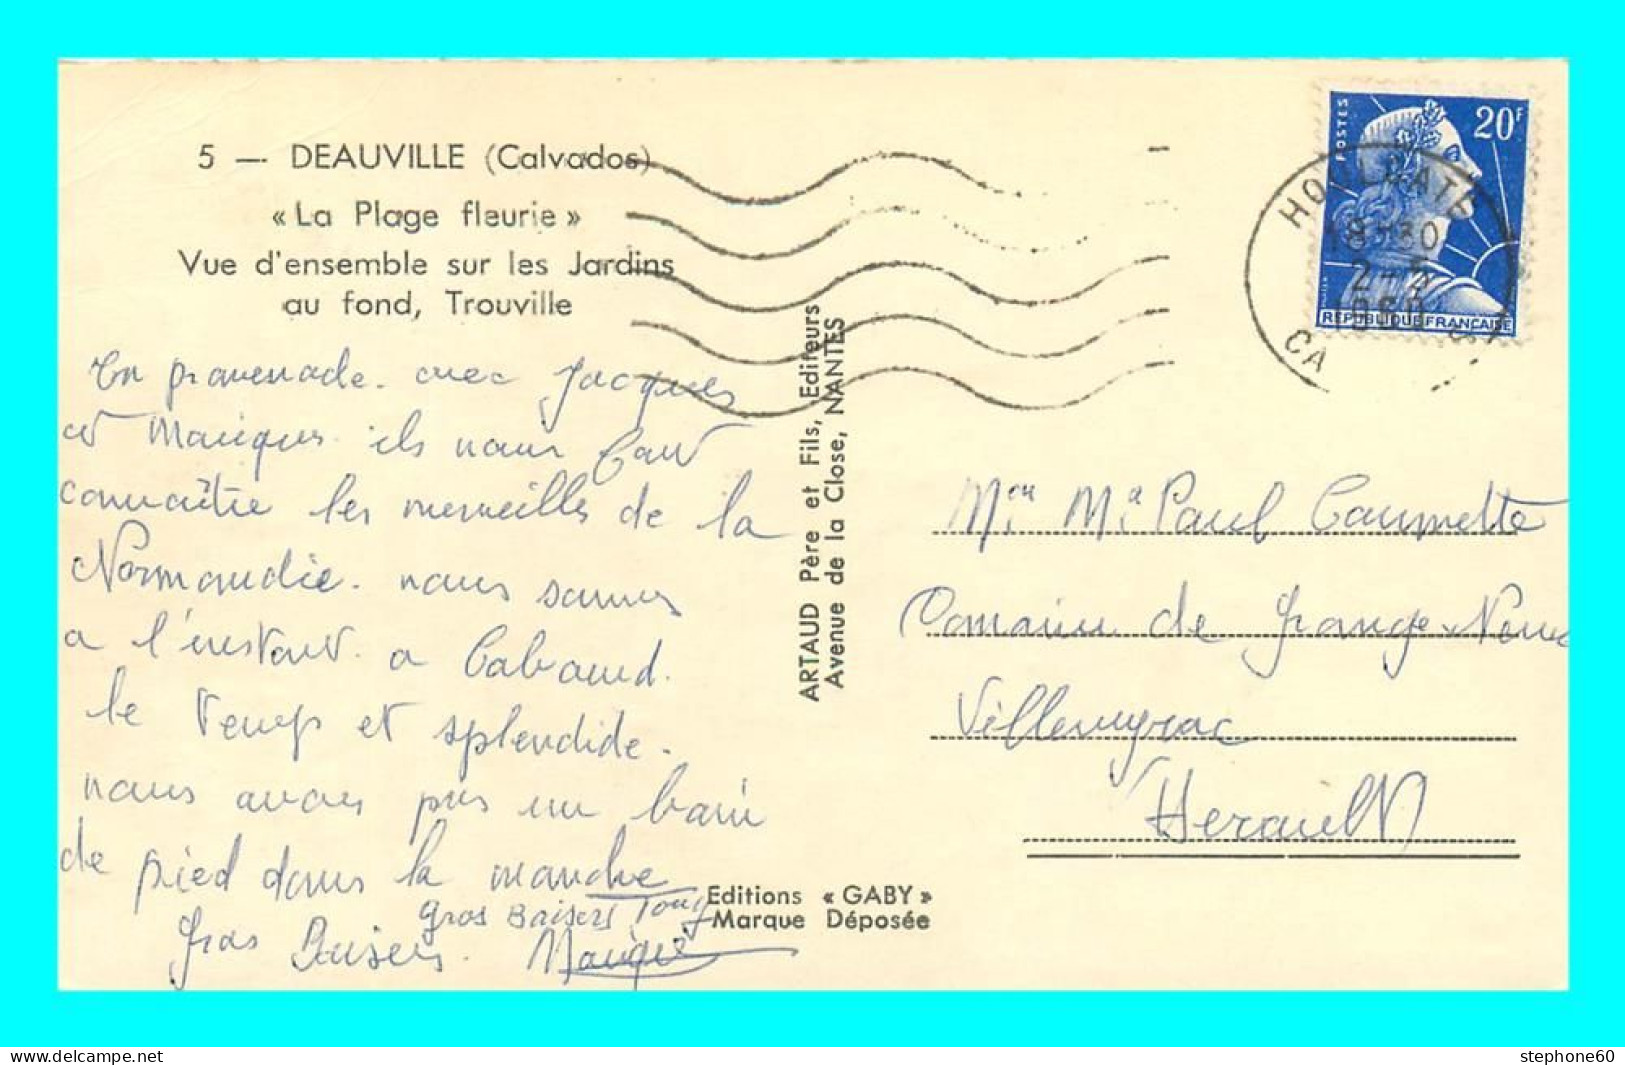 5 — DEAUVILLE (Calvados)
« La Plage fleurie »
Vue d'ensemble sur les Jardins
au fond, Trouville
En promenade. avec Jacques
et ils nous font
connaître les merveilles de la
Normandie. nous sommes
a l'instant. a Cabourd.
le temps et splendide.
nous avons pris un bain
de pied dans la manche
Gros Baisers Tony
Gros Baisers.
ARTAUD Père et Fils, Editeurs
Avenue de la Close, NANTES
Editions « GABY »
Marque Déposée
POSTES
20F
REPUBLIQUE FRANÇAISE
HOULGATE
18 30
2 - 5
CA
Mr Paul
Domaine de Grange Neuve
Villeveyrac
Herault
stephone60